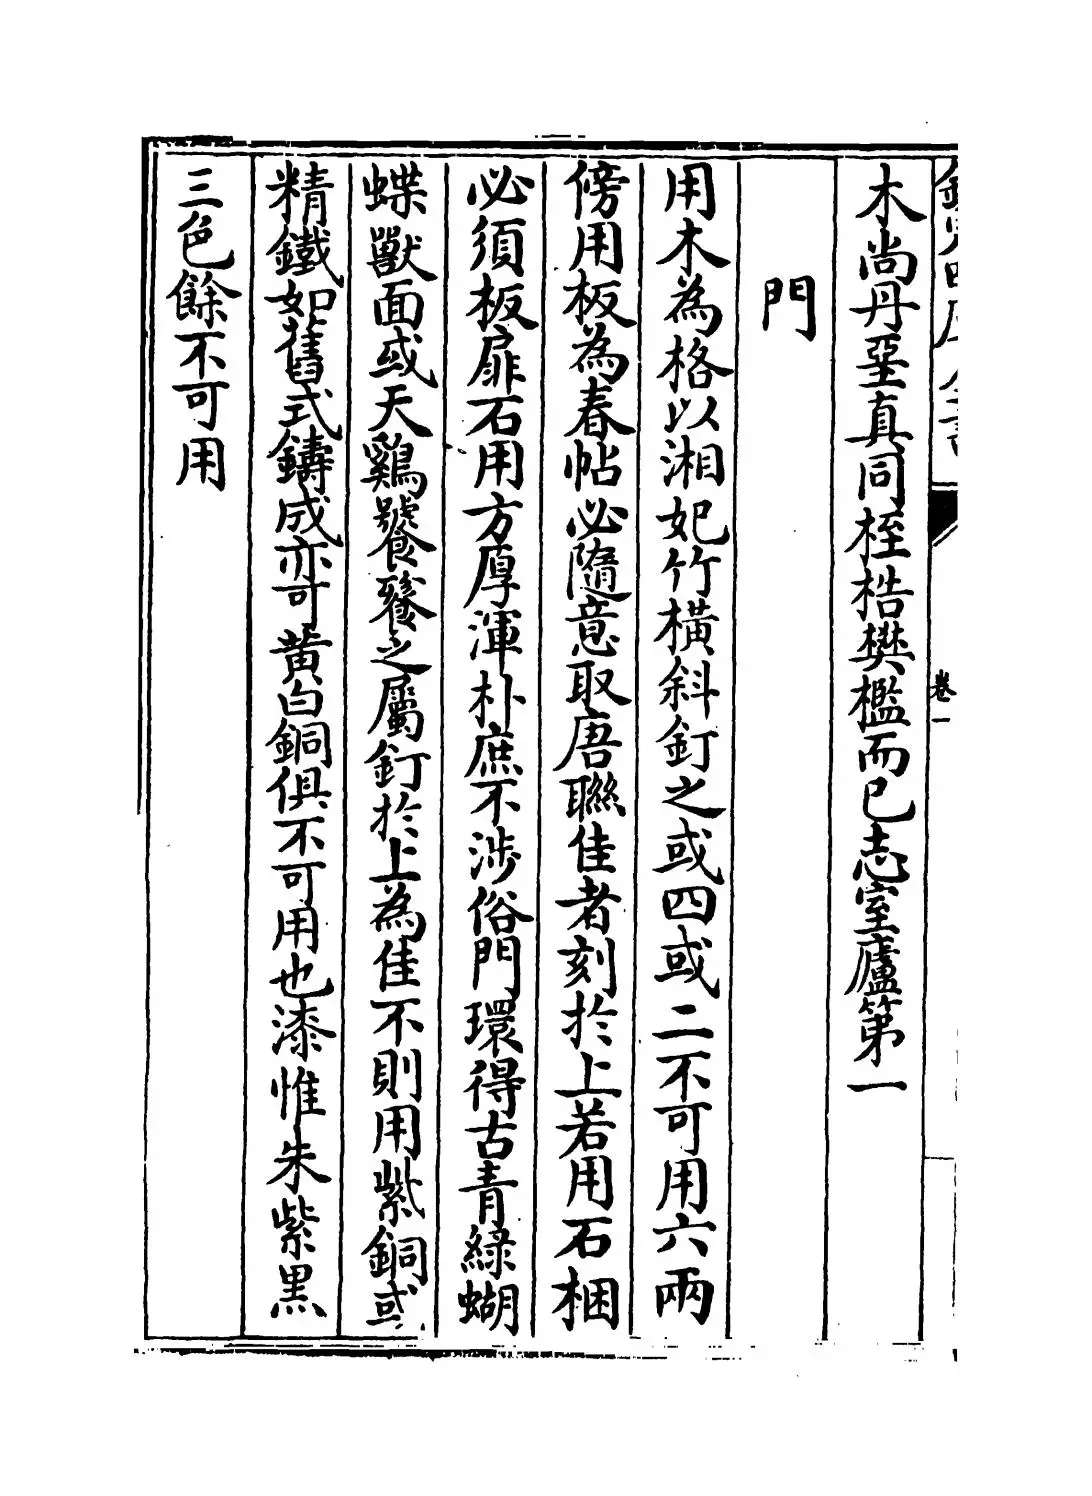 欽定四庫全書
卷一
木尚丹堊真同桎梏樊檻而已志室廬第一
門
用木為格以湘妃竹橫斜釘之或四或二不可用六兩
傍用板為春帖必隨意取唐聯佳者刻於上若用石梱
必須板扉石用方厚渾朴庶不涉俗門環得古青綠蝴
蝶獸面或天鷄饕餮之屬釘於上為佳不則用紫銅或
精鐵如舊式鑄成亦可黄白銅俱不可用也漆惟朱紫黑
三色餘不可用